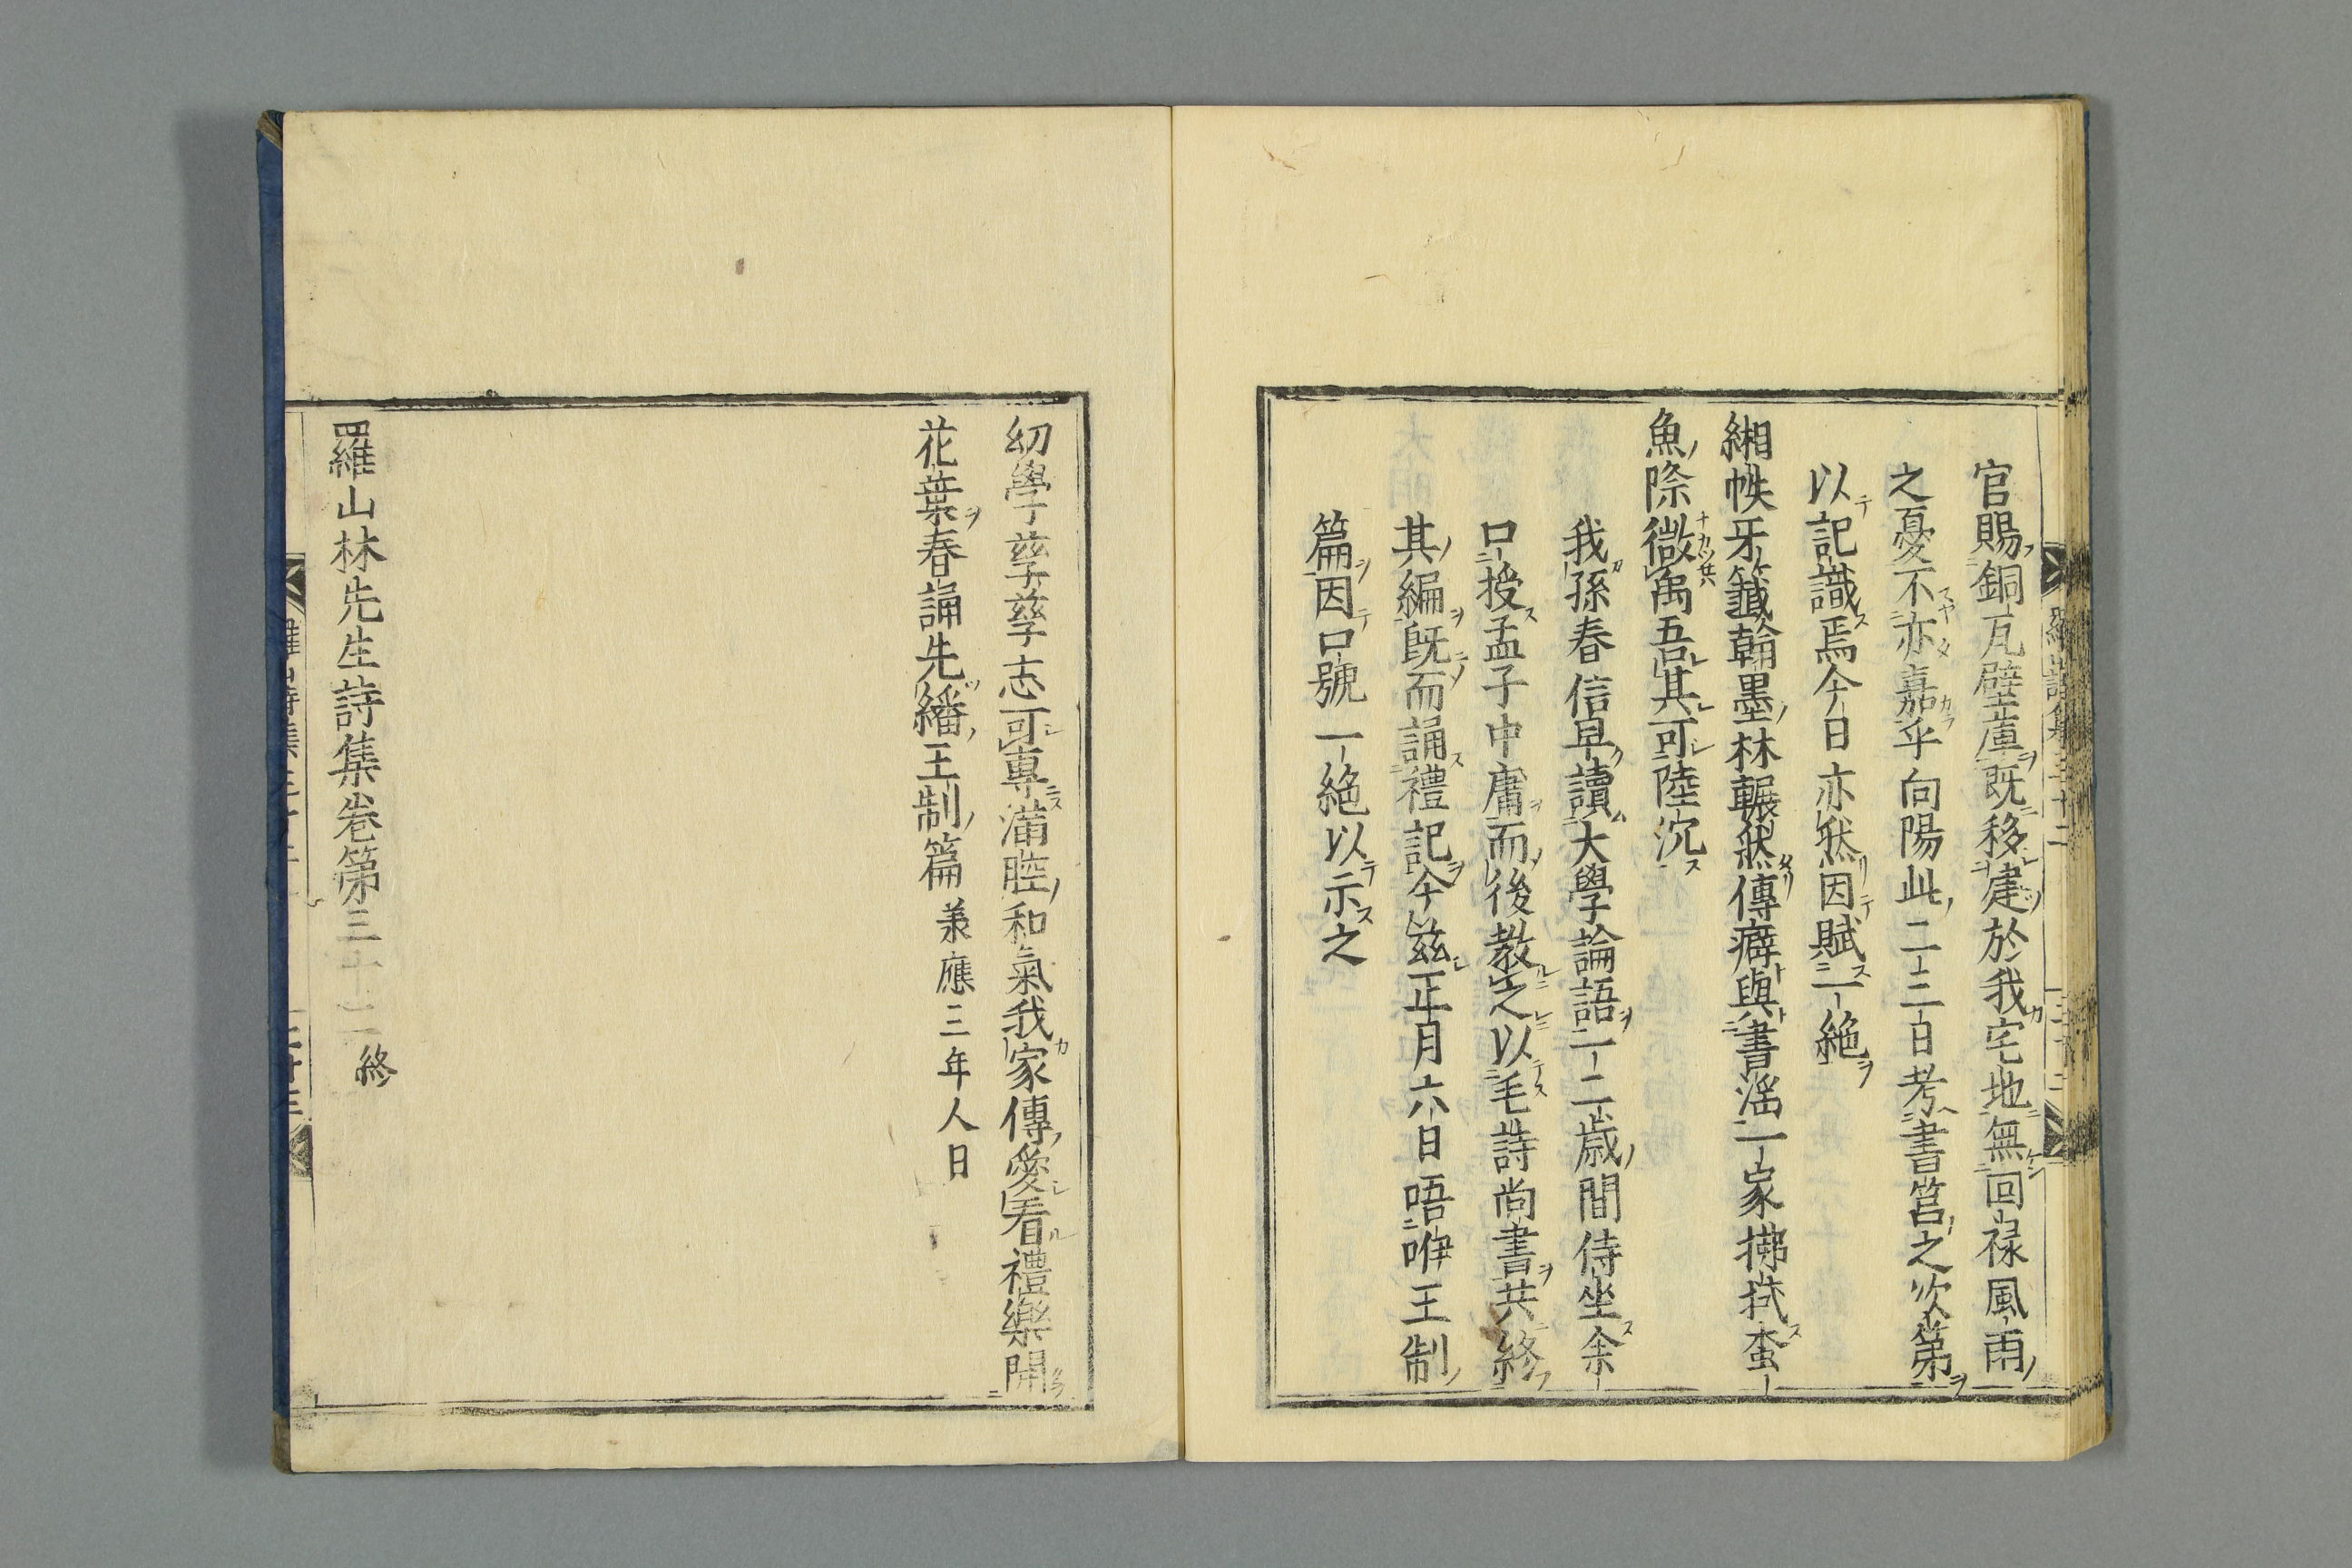 官賜銅瓦壁庫既移建於我宅地無回禄風雨
之憂不亦嘉乎向陽此二三日考書筥之次第
以記識焉今日亦然因賦一絶
緗帙牙籤翰墨林輾然傳癖與書滛一家拂拭蚕
魚際微禹吾其可陸沉
我孫春信早讀大學論語一二歳間侍坐余
口授孟子中庸而後教之以毛詩尚書共終
其編既而誦禮記今茲正月六日唔咿王制
篇因口號一絶以示之
幼學孳孳志可專滿腔和氣我家傳愛看禮樂開
花葉春誦先繙王制篇 羕應三年人日
羅山林先生詩集卷第三十二終